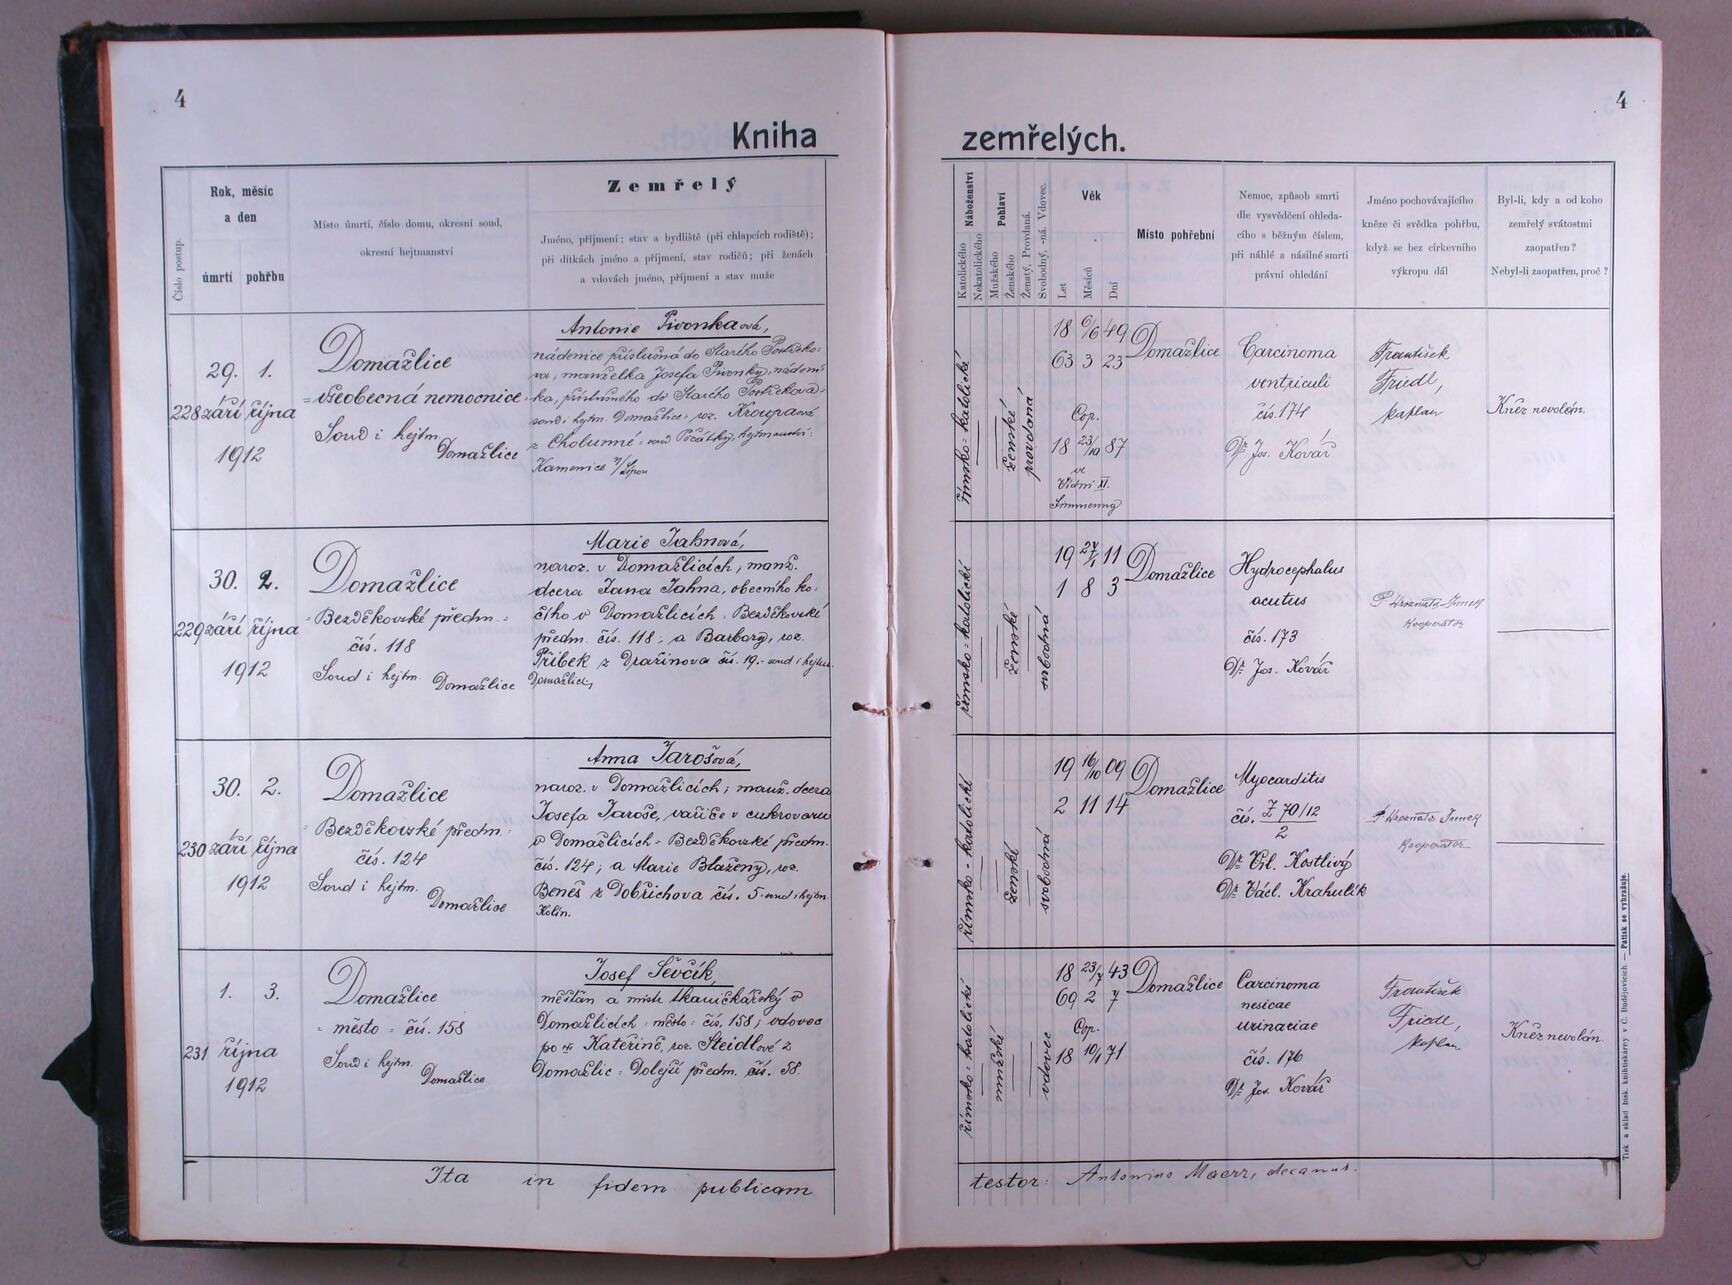 4
Kniha
Číslo postup.
Rok, měsíc
a den
úmrtí pohřbu
Místo úmrtí, číslo domu, okresní soud,
okresní hejtmanství
Zemřelý
Jméno, příjmení; stav a bydliště (při chlapcích rodiště);
při dítkách jméno a příjmení, stav rodičů; při ženách
a vdovách jméno, příjmení a stav muže
228
29. 1.
září října
1912
Domažlice
=všeobecná nemocnice=
Soud i hejtm.
Domažlice
Antonie Pivonkaová,
nádenice příslušná do Starého Postřeko=
va, manželka Josefa Pivonky, nádení=
ka, příslušného do Starého Postřekova=
soud i hejtm. Domažlice; roz. Kroupaová
z Cholunné=soud Počátky, hejtmanství:
Kamenice n/Lipou
229
30. 2.
září října
1912
Domažlice
=Bezděkovské předm.=
čís. 118
Soud i hejtm.
Domažlice
Marie Jahnová,
naroz. v Domažlicích, manž.
dcera Jana Jahna, obecního ko=
čího v Domažlicích=Bezděkovské
předm. čís. 118; a Barbory, roz.
Přibek z Dražinova čís. 19.-soud i hejtm.
Domažlice,
230
30. 2.
září října
1912
Domažlice
=Bezděkovské předm.=
čís. 124
Soud i hejtm.
Domažlice
Anna Jarošová,
naroz. v Domažlicích; manž. dcera
Josefa Jaroše, vařiče v cukrovaru
v Domažlicích=Bezděkovské předm.
čís. 124; a Marie Blaženy, roz.
Beneš z Dobřichova čís. 5-soud i hejtm.
Kolín.
231
1. 3.
října
1912
Domažlice
=město= čís. 158
Soud i hejtm.
Domažlice
Josef Ševčík,
měšťan a mistr tkaničkářský v
Domažlicích=město=čís. 158; vdovec
po Kateřině, roz. Steidlové z
Domažlic=Dolejší předm. čís. 58.
Ita in fidem publicam
4
zemřelých.
Náboženství
Katolického
Nekatolického
Pohlaví
Mužského
Ženského
Ženatý, Provdaná.
Svobodný, -ná. Vdovec.
Věk
Let
Měsíců
Dní
Místo pohřební
Nemoc, způsob smrti
dle vysvědčení ohleda-
cího s běžným číslem,
při náhlé a násilné smrti
právní ohledání
Jméno pochovávajícího
kněze či svědka pohřbu,
když se bez církevního
výkropu dál
Byl-li, kdy a od koho
zemřelý svátostmi
zaopatřen?
Nebyl-li zaopatřen, proč?
římsko=katolické
ženské
provdaná
18 6/6 49
63 3 23
Cop.
18 23/10 87
ve
Vídni XI.
Simmering
Domažlice
Carcinoma
ventriculi
čís. 174
Dr Jos. Kovář
František
Friedl,
kaplan
Kněz nevolán.
římsko=katolické
ženské
svobodná
19 27/1 11
1 8 3
Domažlice
Hydrocephalus
acutus
čís. 173
Dr Jos. Kovář
P Hroznata
Kooperátor
římsko=katolické
ženské
svobodná
19 16/10 09
2 11 14
Domažlice
Myocarditis
čís. Z 70/12
2
Dr Vrl. Kostlivý
Dr Václ. Krahulík
P Hroznata
Kooperátor
římsko=katolické
mužské
vdovec
18 23/7 43
69 2 7
Cop.
18 10/1 71
Domažlice
Carcinoma
vesicae
urinariae
čís. 176
Dr Jos. Kovář
František
Friedl,
kaplan
Kněz nevolán.
testor: Antonius Maerz, decanus.
Tisk a sklad bisk. knihtiskárny v Č. Budějovicích. — Patisk se vyhražuje.